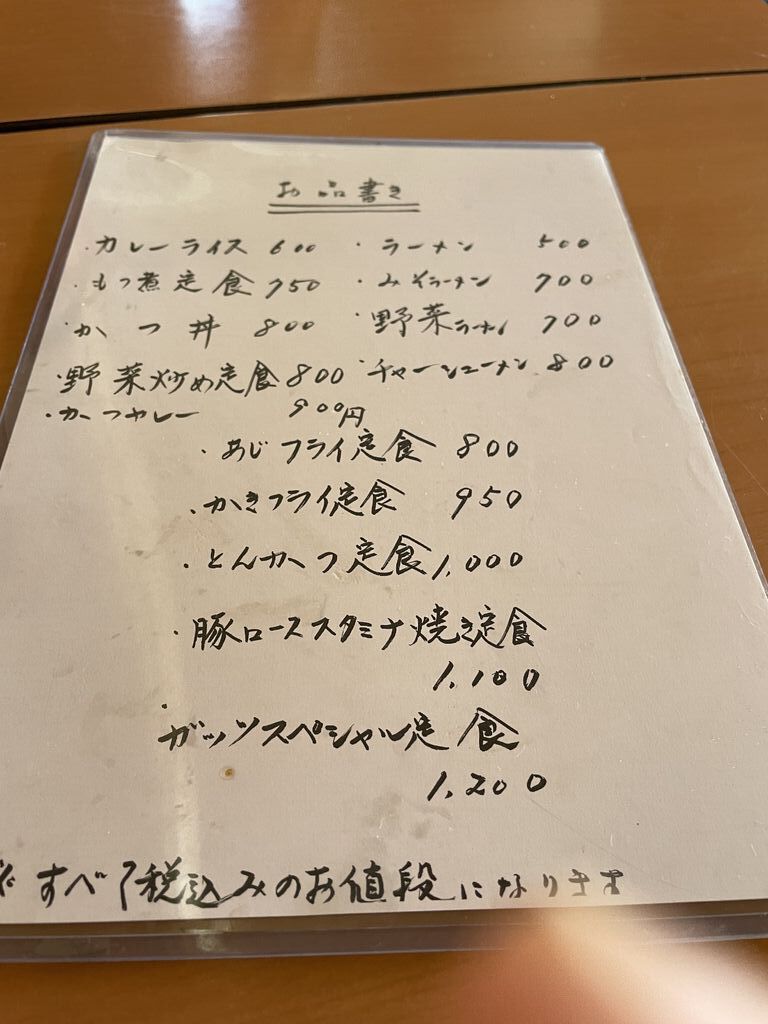 お品書き
・カレーライス 600 ・ラーメン 500
・もつ煮定食 750 ・みそラーメン 700
・かつ丼 800 ・野菜ラーメン 700
・野菜炒め定食 800 ・チャーシューメン 800
・かつカレー 900円
・あじフライ定食 800
・かきフライ定食 950
・とんかつ定食 1,000
・豚ローススタミナ焼き定食
1,100
・ガッツスペシャル定食
1,200
※すべて税込みのお値段になります